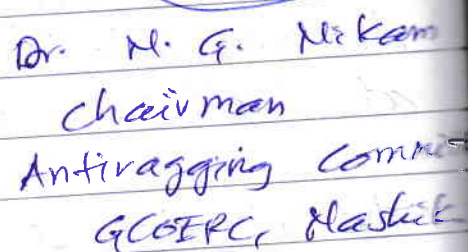 Dr. M. G. Nikam
chairman
Antiragging Comm
GCOERC, Nashik